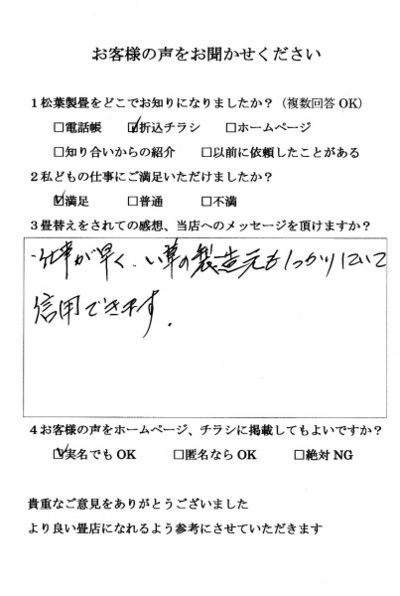 お客様の声をお聞かせください
1松葉製畳をどこでお知りになりましたか?(複数回答OK)
□電話帳 ☑折込チラシ □ホームページ
□知り合いからの紹介 □以前に依頼したことがある
2私どもの仕事にご満足いただけましたか?
☑満足 □普通 □不満
3畳替えをされての感想、当店へのメッセージを頂けますか?
・仕事が早く、い草の製造元もしっかりしていて
信用できます。
4お客様の声をホームページ、チラシに掲載してもよいですか?
☑実名でもOK □匿名ならOK □絶対NG
貴重なご意見をありがとうございました
より良い畳店になれるよう参考にさせていただきます